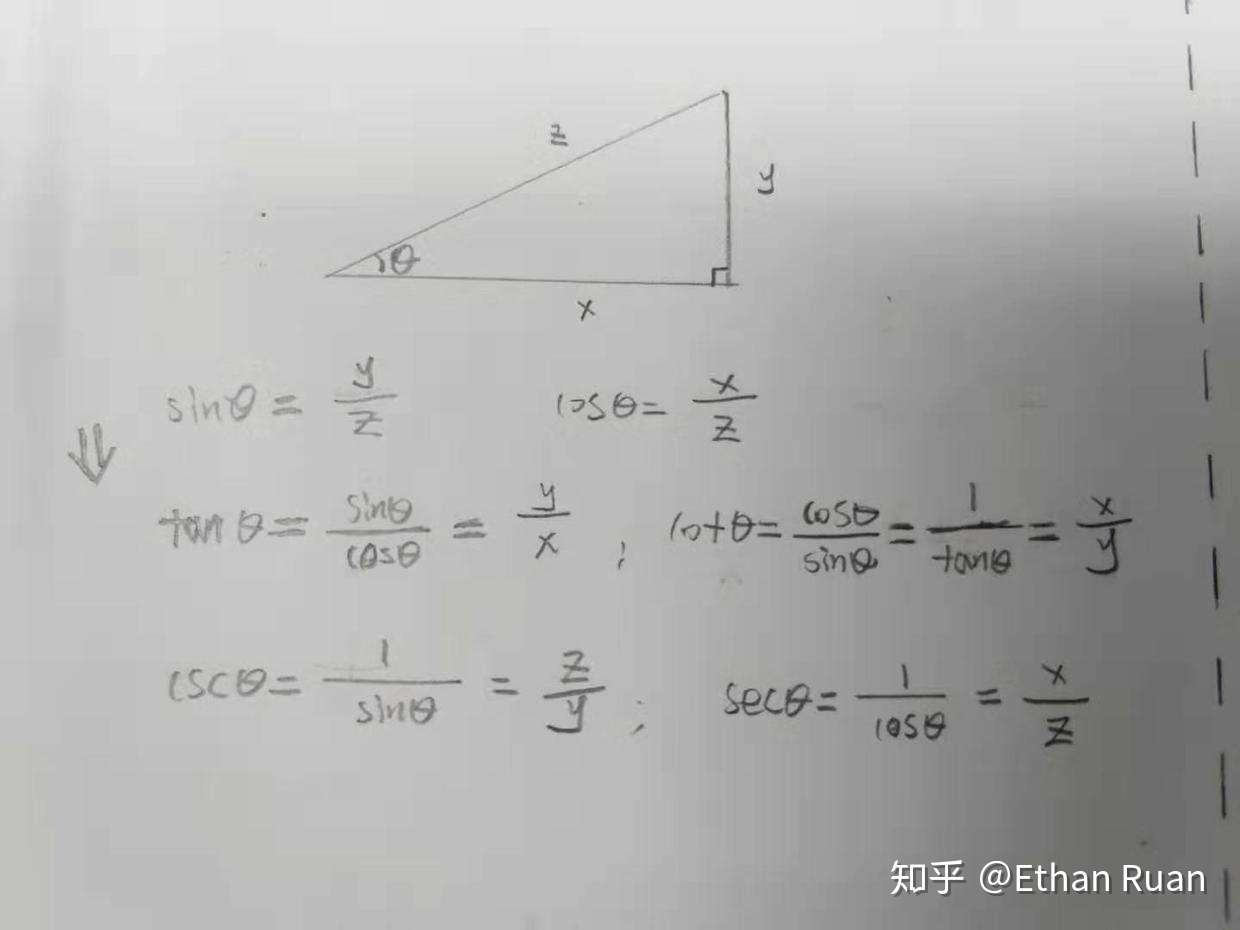 z
y
θ
x
sinθ = y/z    cosθ = x/z
⇓
tanθ = sinθ/cosθ = y/x ; cotθ = cosθ/sinθ = 1/tanθ = x/y
cscθ = 1/sinθ = z/y ; secθ = 1/cosθ = x/z
知乎 @Ethan Ruan